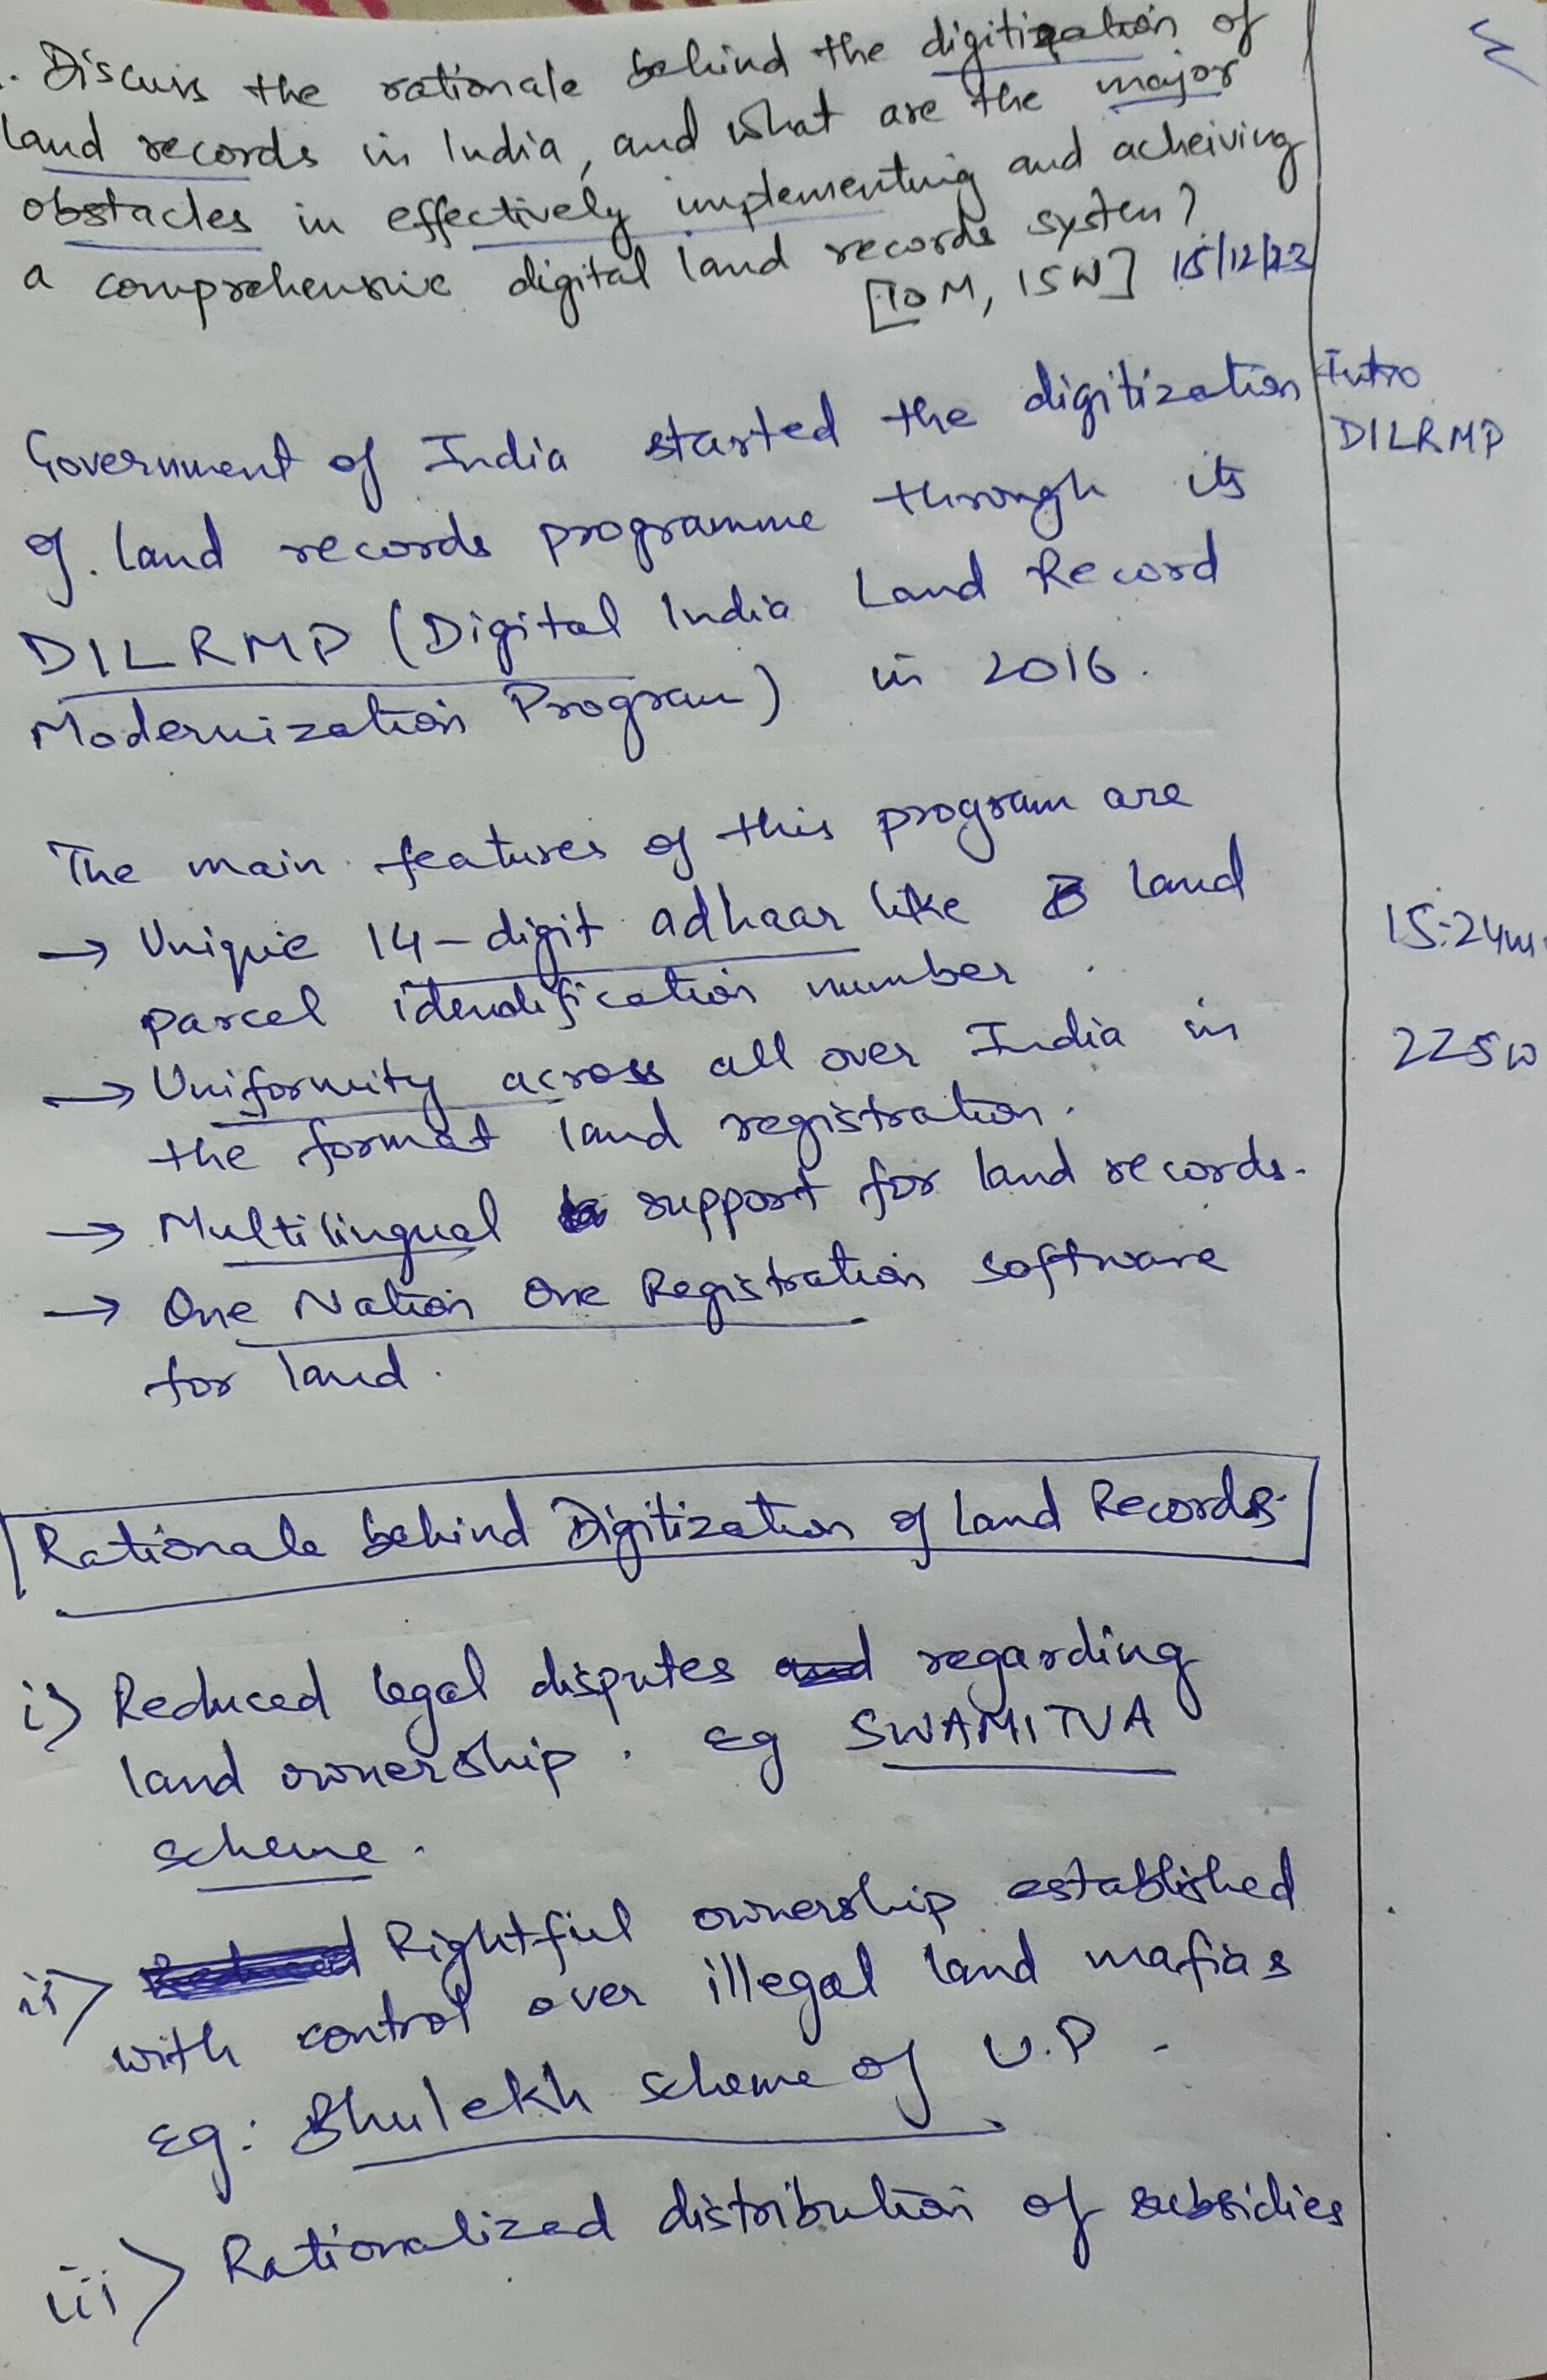 . Discuss the rationale behind the digitization of
land records in India, and what are the major
obstacles in effectively implementing and acheiving
a comprehensive digital land records system?
[10M, 15W] 15/12/23
Intro
DILRMP
Government of India started the digitization
of land records programme through its
DILRMP (Digital India Land Record
Modernization Program) in 2016.
The main features of this program are
→ Unique 14-digit adhaar like land
parcel identification number.
15:24m
→ Uniformity across all over India in
the format land registration.
225w
→ Multilingual support for land records.
→ One Nation One Registration software
for land.
Rationale behind Digitization of Land Records.
i) Reduced legal disputes regarding
land ownership. Eg SWAMITVA
scheme.
ii) Rightful ownership established
with control over illegal land mafias
Eg: Bhulekh scheme of U.P.
iii) Rationalized distribution of subsidies